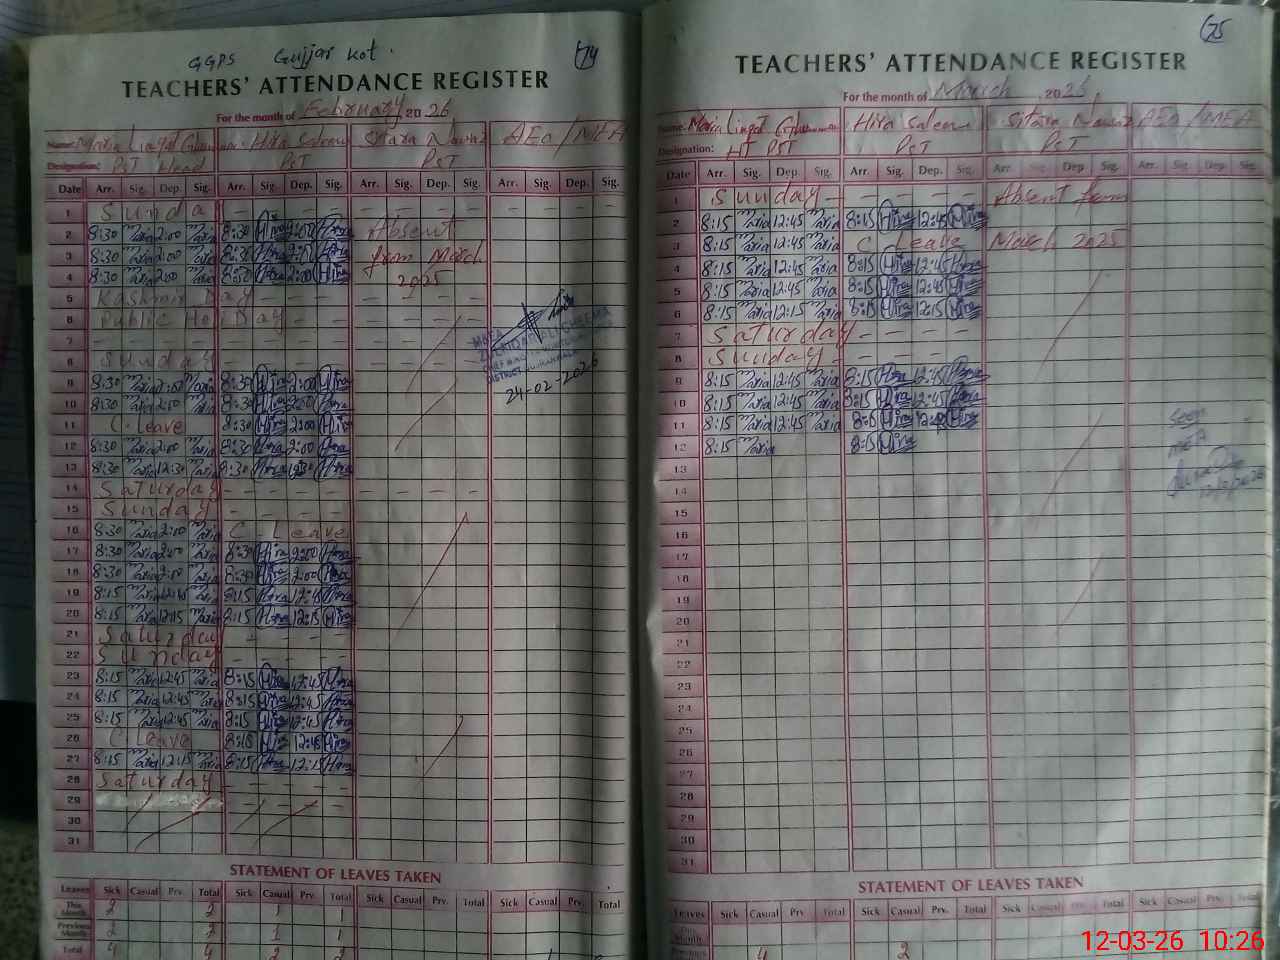 GGPS Gujjar kot.
74
TEACHERS' ATTENDANCE REGISTER
For the month of February 2026
Name: Maria Liaqat Hira Saleem Sitara Nawaz AEO / MEA
Designation: PST Head PST PST
Date Arr. Sig. Dep. Sig. Arr. Sig. Dep. Sig. Arr. Sig. Dep. Sig. Arr. Sig. Dep. Sig.
1 Sunda
2 8:30 Maria 2:00 Maria 8:30 Hira 2:00 Hira Absent
3 8:30 Maria 2:00 Maria 8:30 Hira 2:00 Hira from March
4 8:30 Maria 2:00 Maria 8:30 Hira 2:00 Hira 2025
5 Kashmir Day
6 Public Holiday
7
8 Sunday
9 8:30 Maria 2:00 Maria 8:30 Hira 2:00 Hira
24-02-2026
10 8:30 Maria 2:00 Maria 8:30 Hira 2:00 Hira
11 C. Leave 8:30 Hira 2:00 Hira
12 8:30 Maria 2:00 Maria 8:30 Hira 2:00 Hira
13 8:30 Maria 12:30 Maria 8:30 Hira 12:30 Hira
14 Saturday
15 Sunday
16 8:30 Maria 2:00 Maria C Leave
17 8:30 Maria 2:00 Maria 8:30 Hira 2:00 Hira
18 8:30 Maria 2:00 Maria 8:30 Hira 2:00 Hira
19 8:15 Maria 12:45 Maria 8:15 Hira 12:45 Hira
20 8:15 Maria 12:15 Maria 8:15 Hira 12:15 Hira
21 Saturday
22 Sunday
23 8:15 Maria 12:45 Maria 8:15 Hira 12:45 Hira
24 8:15 Maria 12:45 Maria 8:15 Hira 12:45 Hira
25 8:15 Maria 12:45 Maria 8:15 Hira 12:45 Hira
26 C Leave 8:15 Hira 12:45 Hira
27 8:15 Maria 12:15 Maria 8:15 Hira 12:15 Hira
28 Saturday
29
30
31
STATEMENT OF LEAVES TAKEN
Leaves Sick Casual Prv. Total Sick Casual Prv. Total Sick Casual Prv. Total Sick Casual Prv. Total
This Month 2 2 1 1
Previous Month 2 2 1 1
Total 4 4 2 2
75
TEACHERS' ATTENDANCE REGISTER
For the month of March, 2026.
Name: Maria Liaqat Hira Saleem Sitara Nawaz AEO / MEA
Designation: HT PST PST PST
Date Arr. Sig. Dep. Sig. Arr. Sig. Dep. Sig. Arr. Sig. Dep. Sig. Arr. Sig. Dep. Sig.
1 Sunday Absent from
2 8:15 Maria 12:45 Maria 8:15 Hira 12:45 Hira
3 8:15 Maria 12:45 Maria C Leave March 2025
4 8:15 Maria 12:45 Maria 8:15 Hira 12:45 Hira
5 8:15 Maria 12:45 Maria 8:15 Hira 12:45 Hira
6 8:15 Maria 12:15 Maria 8:15 Hira 12:15 Hira
7 Saturday
8 Sunday
9 8:15 Maria 12:45 Maria 8:15 Hira 12:45 Hira
10 8:15 Maria 12:45 Maria 8:15 Hira 12:45 Hira
11 8:15 Maria 12:45 Maria 8:15 Hira 12:45 Hira
Seen
12 8:15 Maria 8:15 Hira
MEA
13
14
15
16
17
18
19
20
21
22
23
24
25
26
27
28
29
30
31
STATEMENT OF LEAVES TAKEN
Leaves Sick Casual Prv. Total Sick Casual Prv. Total Sick Casual Prv. Total Sick Casual Prv. Total
This Month
Previous 4 2
12-03-26 10:26